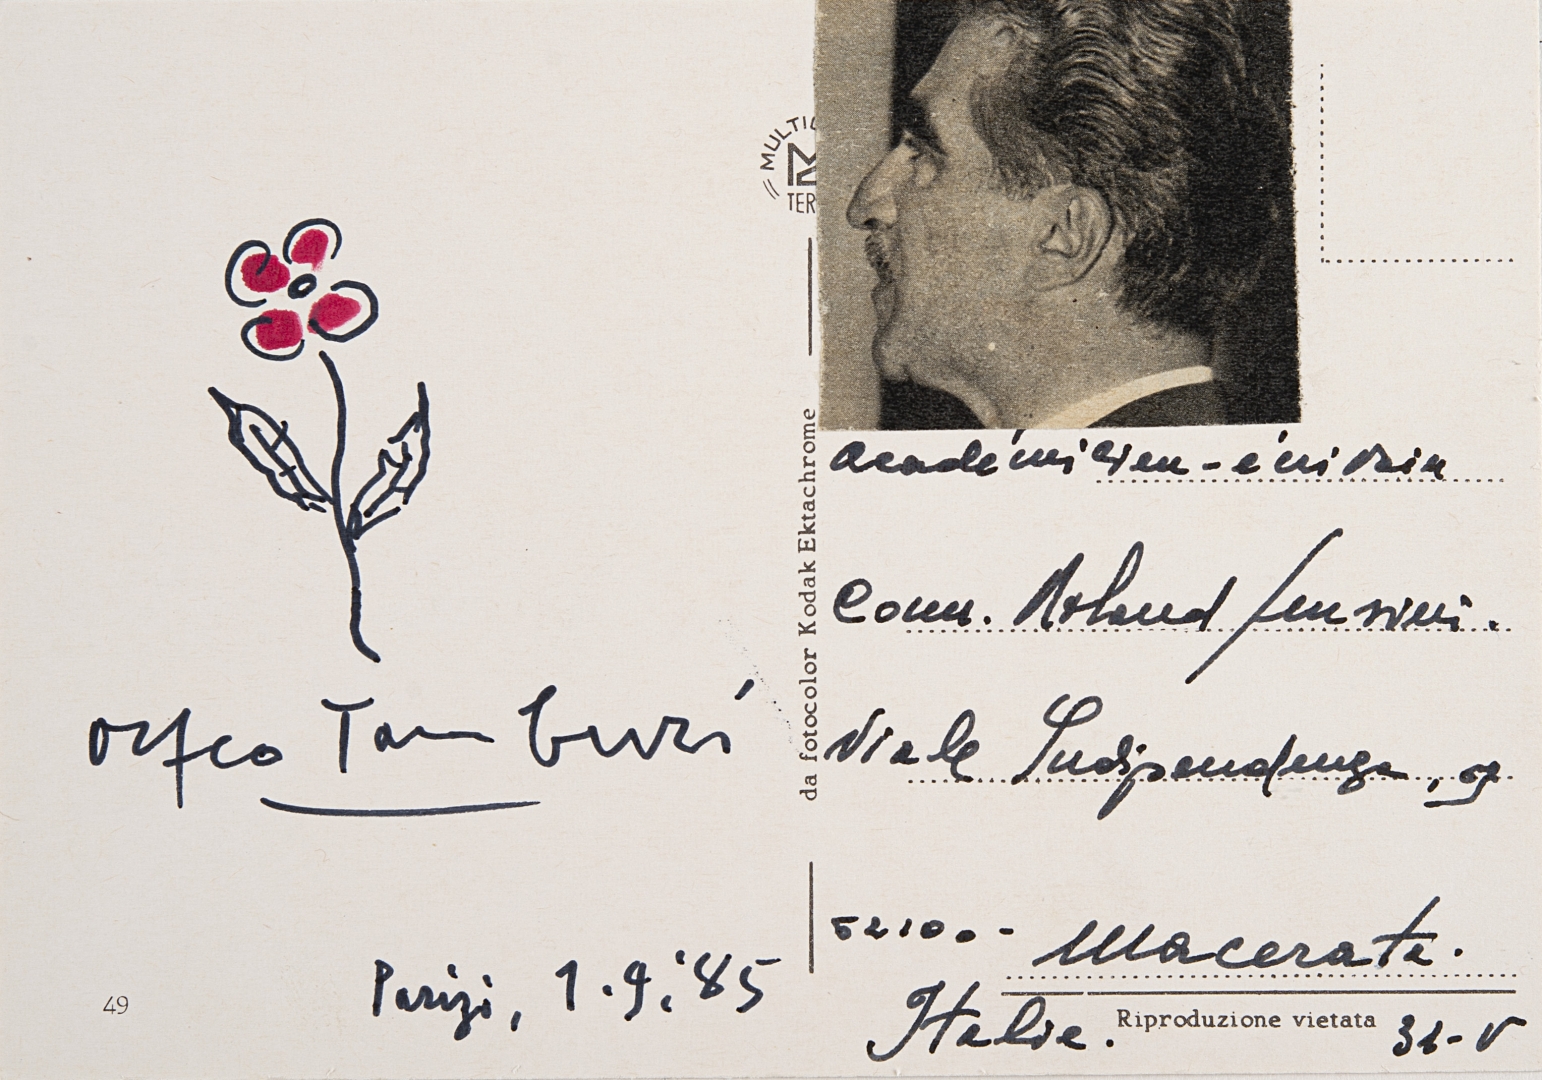 Orfeo Tamburi
Parigi, 1.9.'85
49
MULTI
TER
da fotocolor Kodak Ektachrome
académicien-écrivain
Comm. Roland
Viale Indipendenza,
62100- Macerata.
Italie.
Riproduzione vietata
31-V